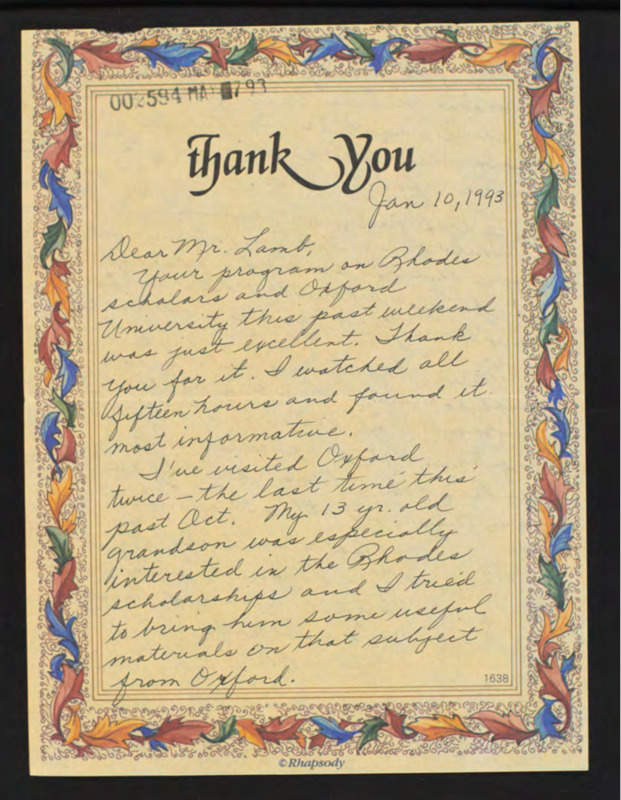 002594 MA 7 93
thank You
Jan 10, 1993
Dear Mr. Lamb,
Your program on Rhodes
scholars and Oxford
University this past weekend
was just excellent. Thank
you for it. I watched all
fifteen hours and found it
most informative.
I've visited Oxford
twice – the last time this
past Oct. My 13 yr. old
grandson was especially
interested in the Rhodes
scholarships and I tried
to bring him some useful
materials on that subject
from Oxford.
1638
©Rhapsody